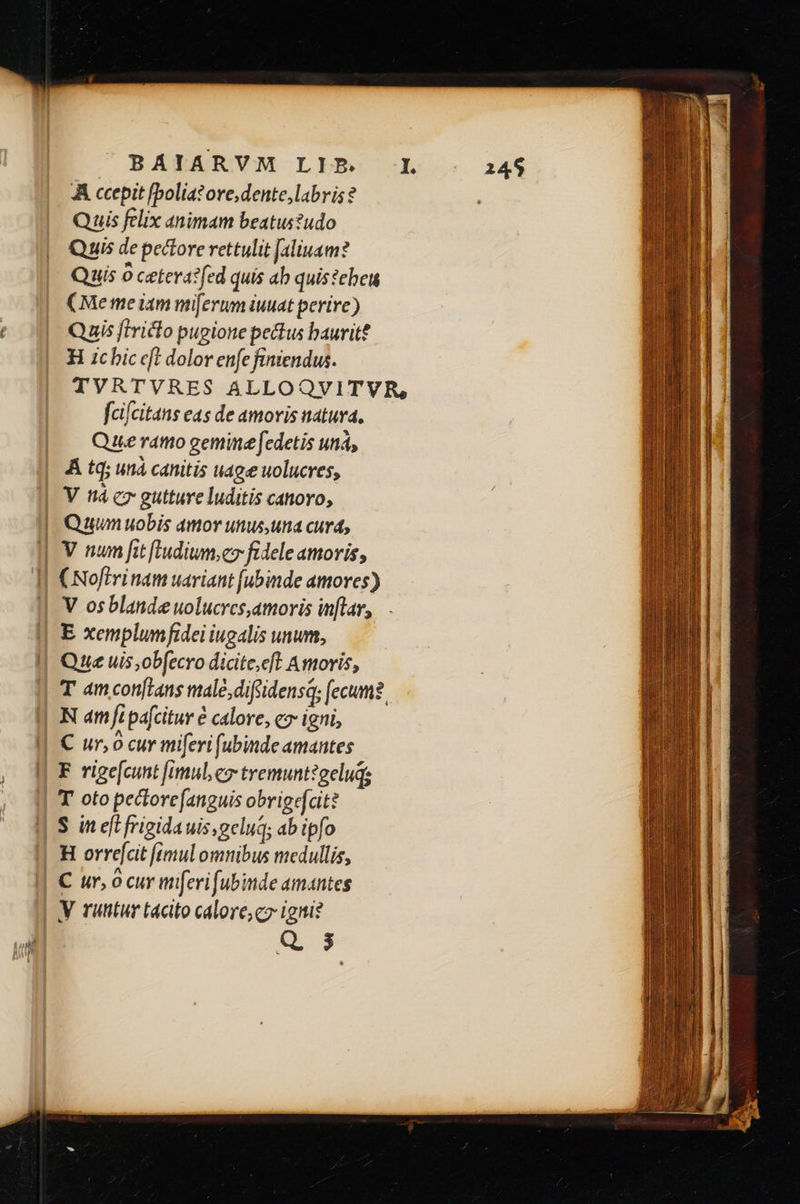 BAIARVM LIB. I. 245
A ccepit ſpolia? ore, dente, labris?
Quis felix animam beatus? udo
Quis de pectore rettulit ſaliuam?
Quis ò cetera? ſed quis ab quis? eheu
(Me me iam miſerum iuuat perire)
Quis ſtricto pugione pectus haurit?
H ic hic eſt dolor enſe finiendus.
TVRTVRES ALLOQVITVR,
ſciſcitans eas de amoris natura.
Quæ ramo geminæ ſedetis unà,
A tq; unà canitis uagæ uolucres,
V nà & gutture luditis canoro,
Quum uobis amor unus, una cura,
V num ſit ſtudium, & fidele amoris,
(Noſtri nam uariant ſubinde amores)
V os blandæ uolucres, amoris inſtar,
E xemplum fidei iugalis unum,
Quæ uis, obſecro dicite, eſt Amoris,
T am conſtans malè, diſsidensq́; ſecum?
N am ſi paſcitur è calore, & igni,
C ur, ò cur miſeri ſubinde amantes
F rigeſcunt ſimul, & tremunt? geluq́;
T oto pectore ſanguis obrigeſcit?
S in eſt frigida uis, geluq́; ab ipſo
H orreſcit ſimul omnibus medullis,
C ur, ò cur miſeri ſubinde amantes
V runtur tacito calore, & igni?
Q 3